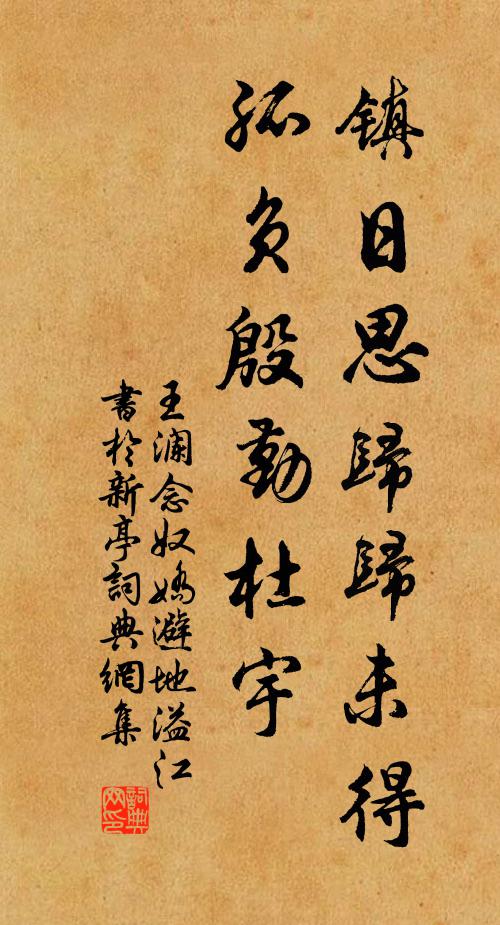 镇日思歸歸未得
孤负殷勤杜宇
王澜念奴嬌避地溢江
書於新亭詞典網集
詞典网印